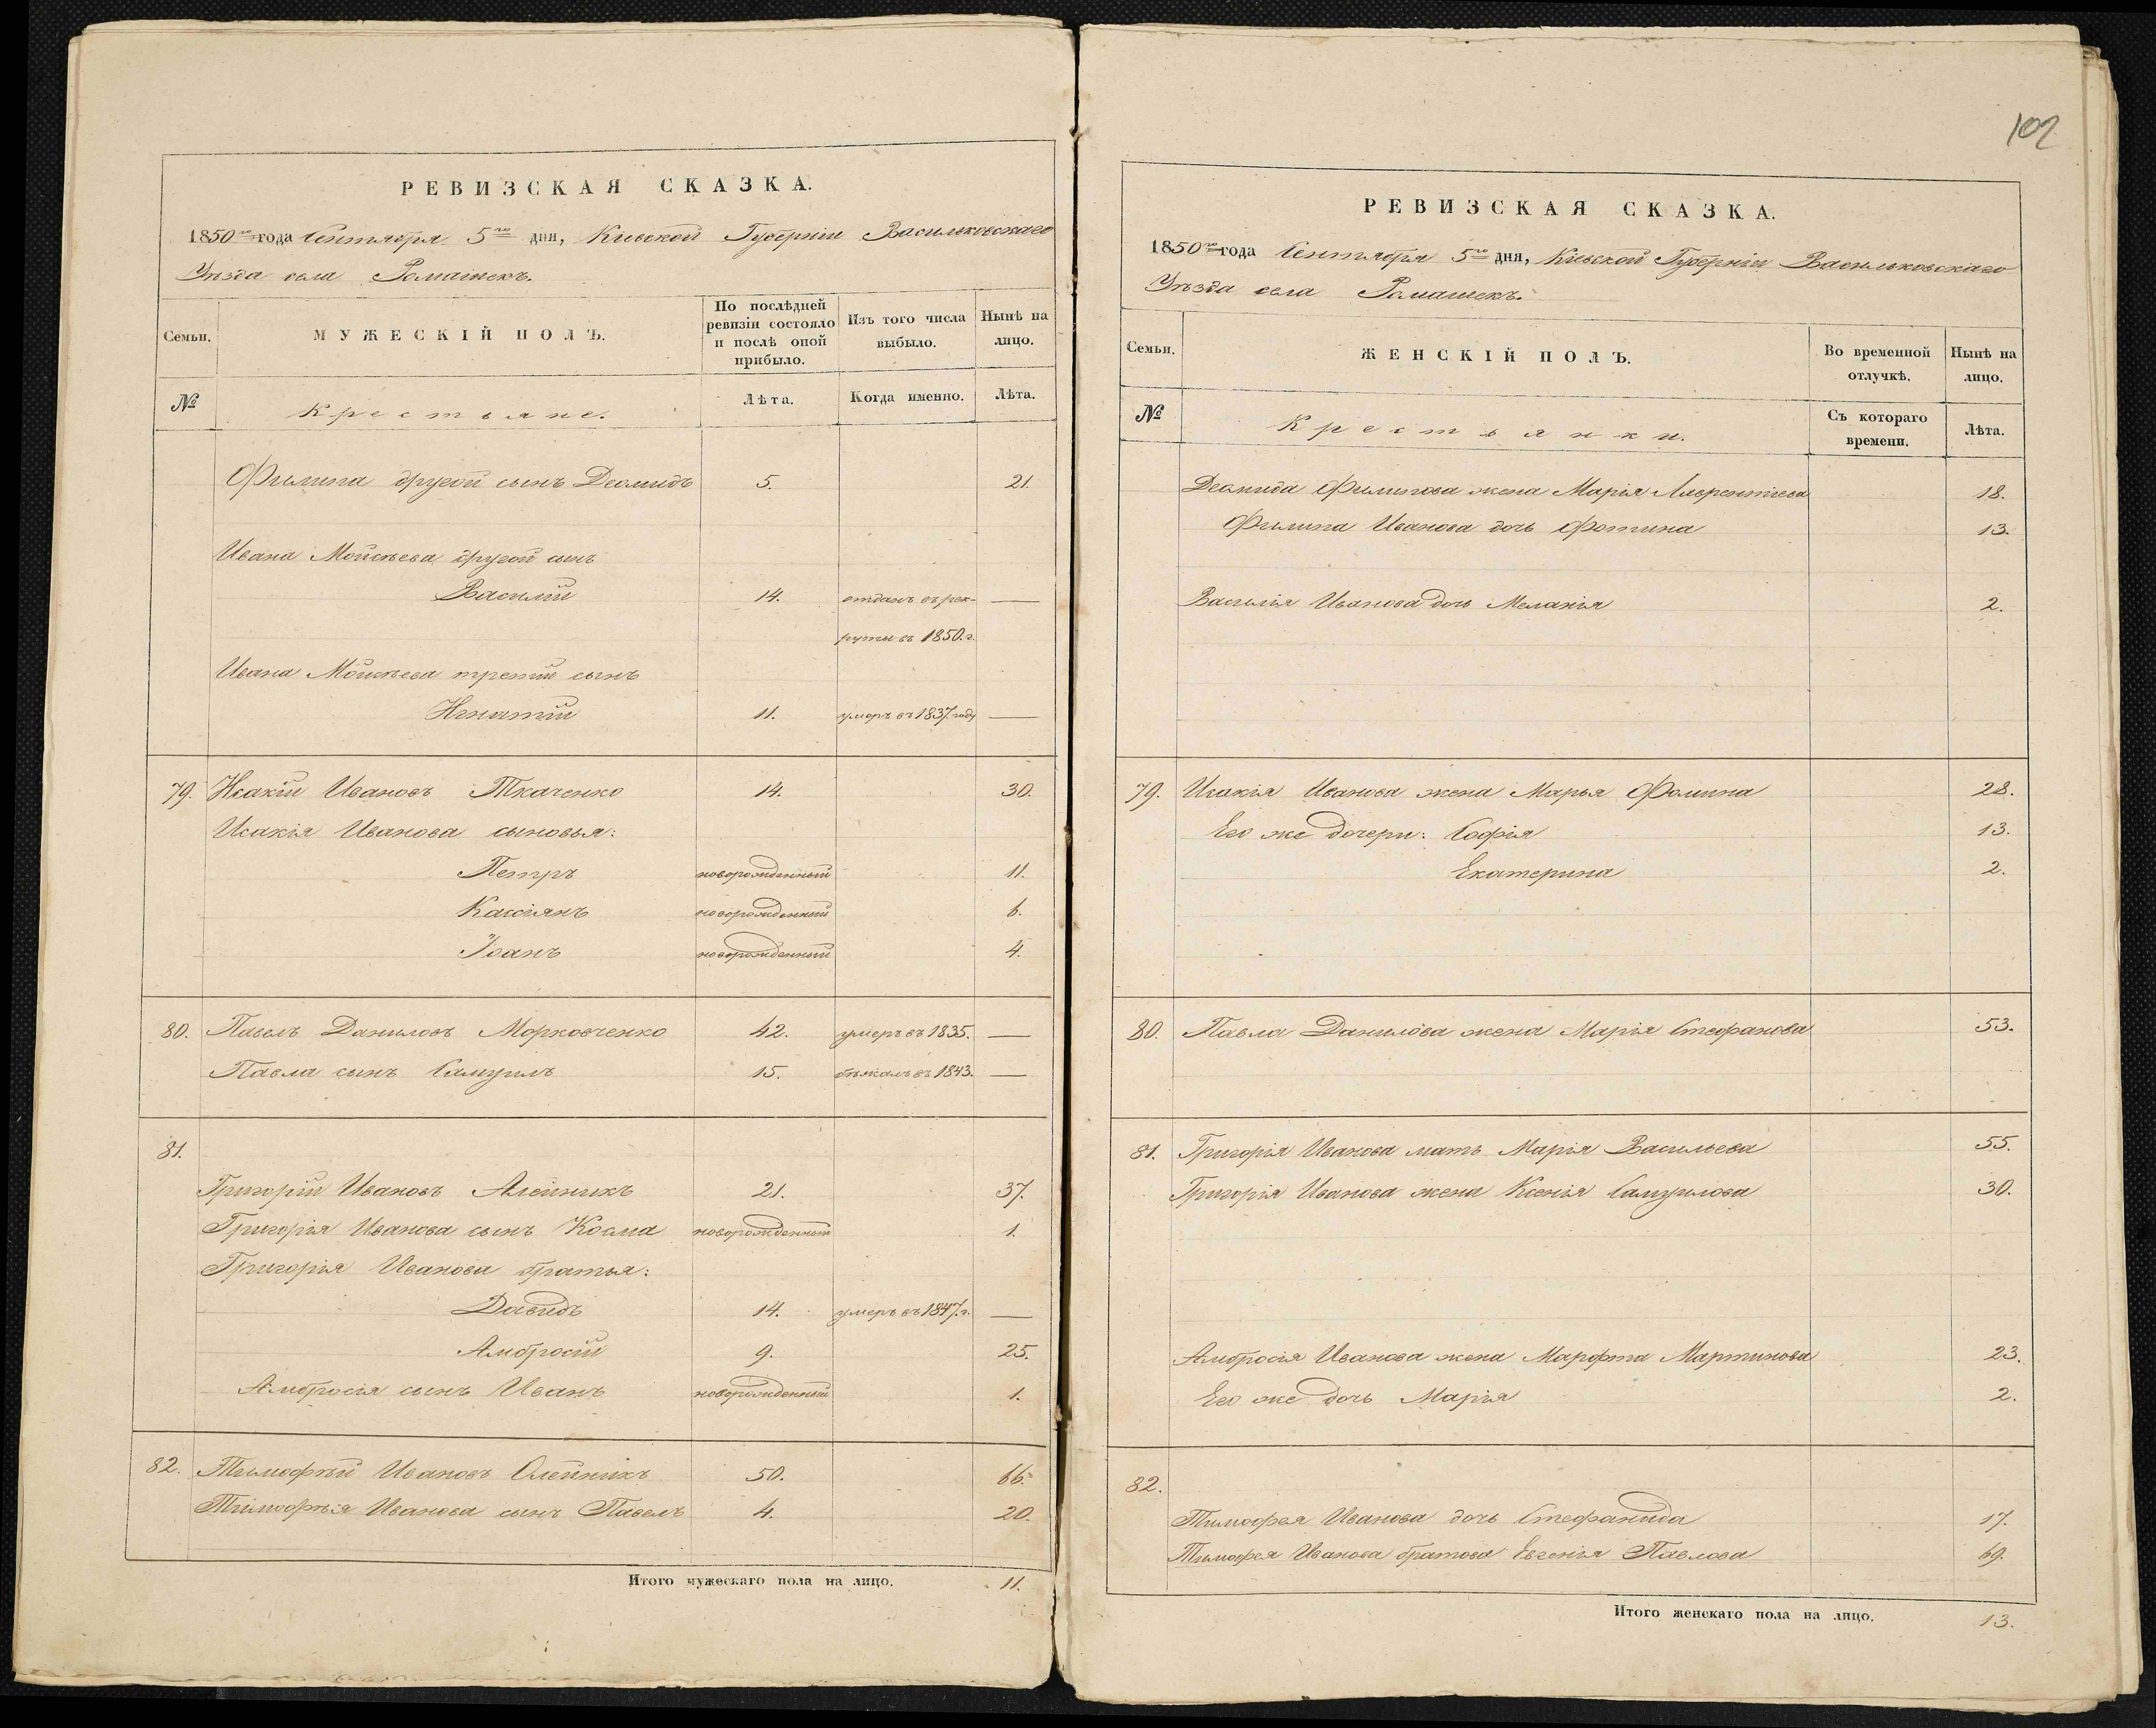 РЕВИЗСКАЯ СКАЗКА.
1850го года Сентября 5го дня, Киевской Губерніи Васильковскаго
Уѣзда села Ромашекъ.
Семьи.
МУЖЕСКІЙ ПОЛЪ.
По послѣдней ревизіи состояло и послѣ оной прибыло.
Изъ того числа выбыло.
Нынѣ на лицо.
№
Крестьяне.
Лѣта.
Когда именно.
Лѣта.
Филипа другой сынъ Деомидъ 5. 21.
Ивана Мойсѣева другой сынъ
Василій 14. отданъ въ рек-
руты въ 1850. г.
Ивана Мойсѣева третій сынъ
Игнатій 11. умеръ въ 1837. году
79. Исакій Ивановъ Ткаченко 14. 30.
Исакія Иванова сыновья:
Петръ новорожденный 11.
Кассіянъ новорожденный 6.
Іоанъ новорожденный 4.
80. Павелъ Даниловъ Морковченко 42. умеръ въ 1835.
Павла сынъ Самуилъ 15. бѣжалъ въ 1843.
81.
Григорій Ивановъ Алейникъ 21. 37.
Григорія Иванова сынъ Косма новорожденный 1.
Григорія Иванова братья:
Давидъ 14. умеръ въ 1847. г.
Амбросій 9. 25.
Амбросія сынъ Иванъ новорожденный 1.
82. Тимофѣй Ивановъ Олейникъ 50. 66.
Тимофѣя Иванова сынъ Павелъ 4. 20.
Итого мужескаго пола на лицо. 11.
102
РЕВИЗСКАЯ СКАЗКА.
1850го года Сентября 5го дня, Кіевской Губерніи Васильковскаго
Уѣзда села Ромашекъ.
Семьи.
ЖЕНСКІЙ ПОЛЪ.
Во временной отлучкѣ.
Нынѣ на лицо.
№
Крестьянки.
Съ котораго времени.
Лѣта.
Деомида Филипова жена Марія Лаврентіева 18.
Филипа Иванова дочь Фотина 13.
Василія Иванова дочь Меланія 2.
79. Исакія Иванова жена Марья Фомина 28.
Его же дочери: Софія 13.
Екатерина 2.
80. Павла Данилова жена Марія Стефанова 53.
81. Григорія Иванова мать Марія Васильева 55.
Григорія Иванова жена Ксенія Самуилова 30.
Амбросія Иванова жена Марфта Мартинова 23.
Его же дочь Марія 2.
82.
Тимофея Иванова дочь Стефанида 17.
Тимофея Иванова братова Евгенія Павлова 69.
Итого женскаго пола на лицо. 13.